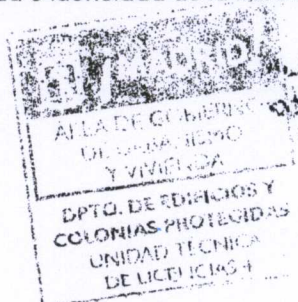 MADRID
AREA DE GOBIERNO
DE URBANISMO
Y VIVIENDA
DPTO. DE EDIFICIOS Y
COLONIAS PROTEGIDAS
UNIDAD TECNICA
DE LICENCIAS 4